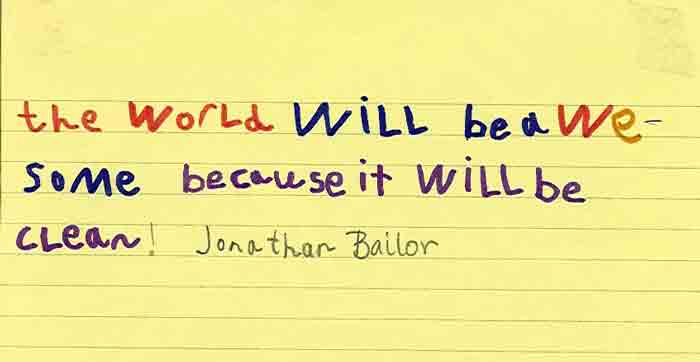 the WorLd WiLL be aWe-
SoMe because it WiLL be
CLean! Jonathan Bailor